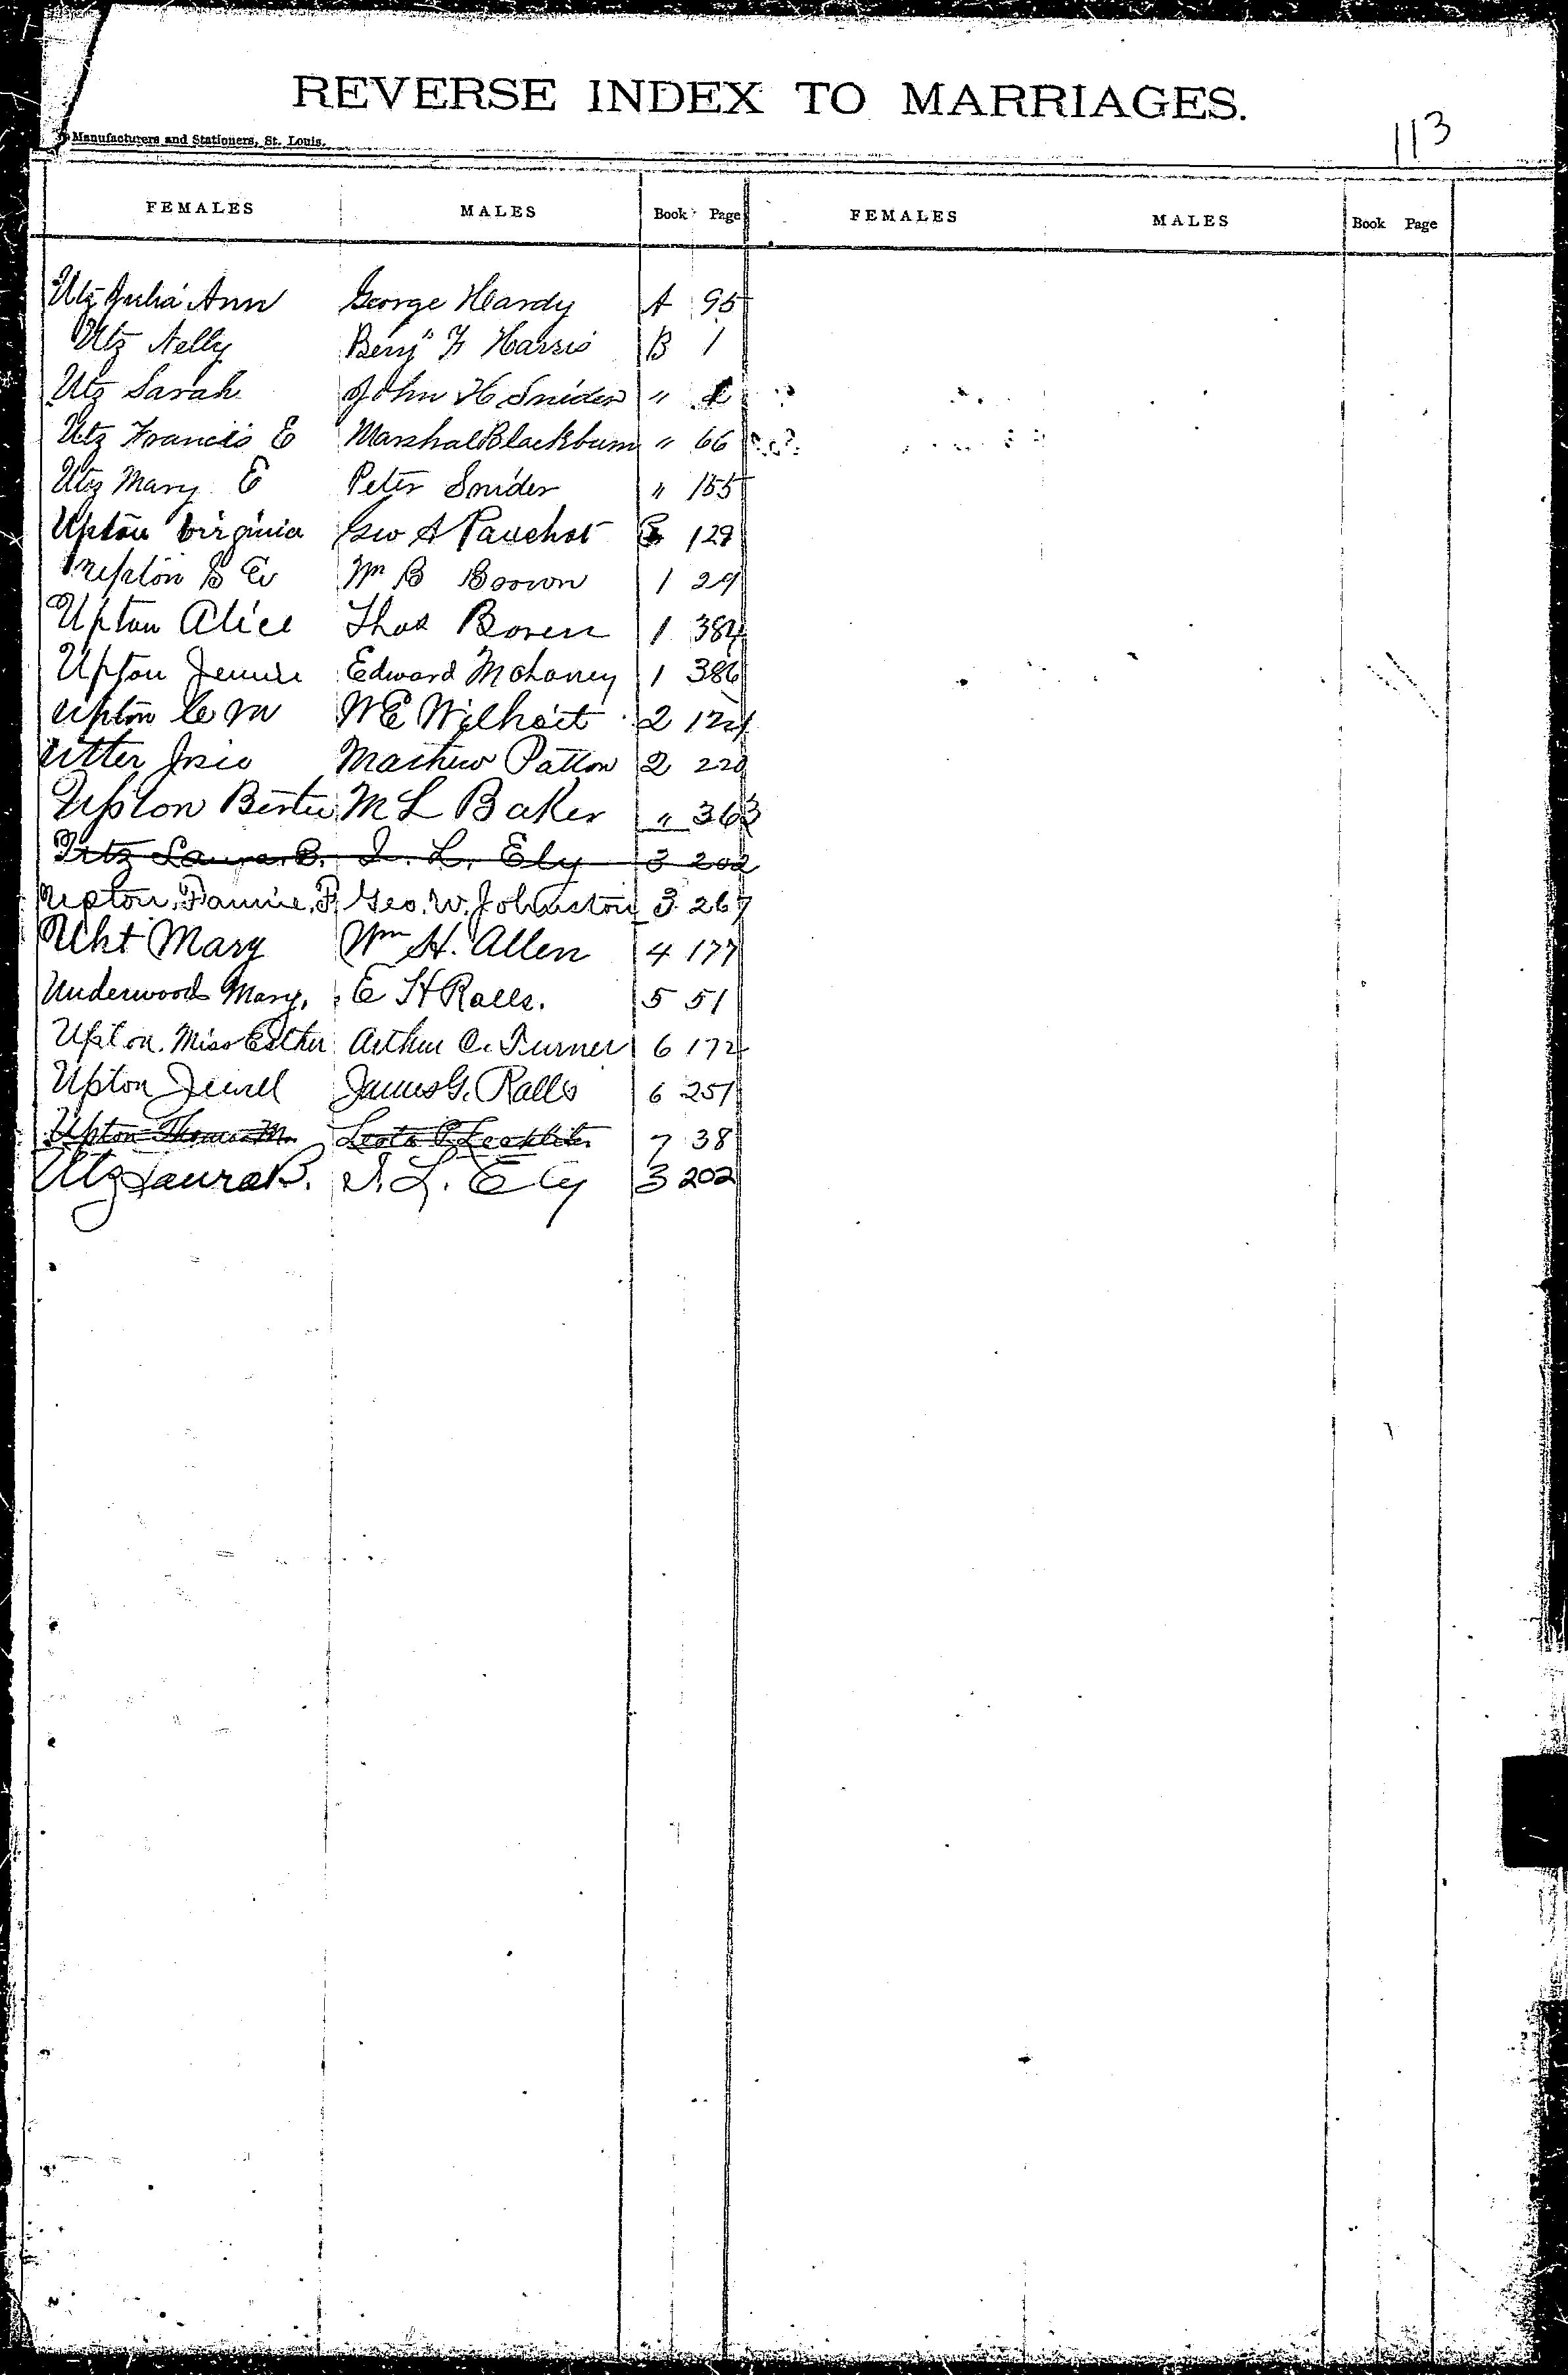 REVERSE INDEX TO MARRIAGES.
113
Manufacturers and Stationers, St. Louis.
FEMALES MALES Book Page FEMALES MALES Book Page
Utz Julia Ann George Hardy A 95
Utz Nelly Benj" F Harris B 1
Utz Sarah John H Snider "
Utz Francis E Marshal Blackburn " 66
Utz Mary E Peter Snider " 155
Upton Virginia Geo A Pauchot 129
Upton Wm B Brown 1 29
Upton Alice Thos Boren 1 384
Upton Jennie Edward Mahoney 1 386
Upton W E Wilhoit 2 124
Utter Josie Mathew Patton 2 220
Upton Bertie M L Baker " 363
Utz Laura B. I. L. Ely 3 202
Upton, Fannie, F. Geo. W. Johnston 3 267
Uht Mary Wm H. Allen 4 177
Underwood Mary, E H Ralls. 5 51
Upton. Miss Esther Arthur C. Turner 6 172
Upton Jewell James G. Ralls 6 251
Upton Thomas M. Leota 7 38
Utz Laura B. I. L. Ely 3 202